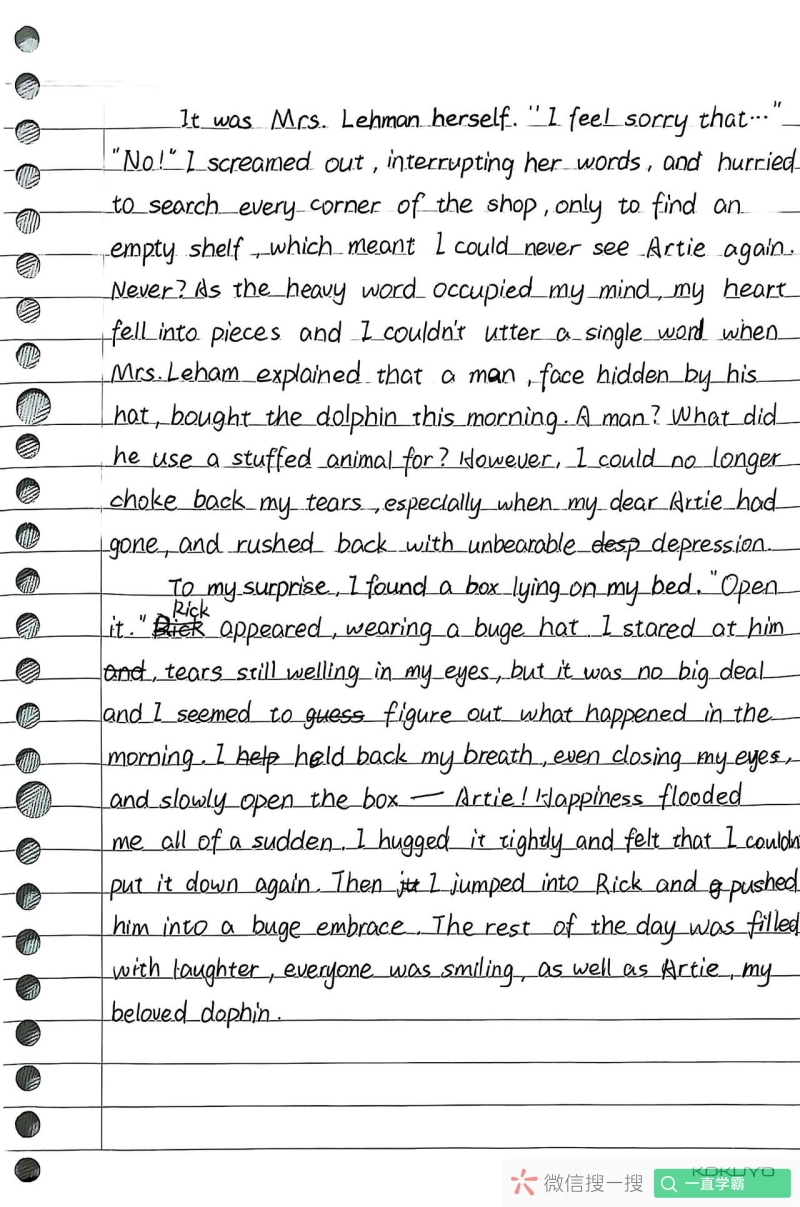 It was Mrs. Lehman herself. "I feel sorry that…"
"No!" I screamed out, interrupting her words, and hurried
to search every corner of the shop, only to find an
empty shelf, which meant I could never see Artie again.
Never? As the heavy word occupied my mind, my heart
fell into pieces and I couldn't utter a single word when
Mrs. Leham explained that a man, face hidden by his
hat, bought the dolphin this morning. A man? What did
he use a stuffed animal for? However, I could no longer
choke back my tears, especially when my dear Artie had
gone, and rushed back with unbearable desp depression.
To my surprise, I found a box lying on my bed. "Open
it." Rick appeared, wearing a buge hat. I stared at him
and, tears still welling in my eyes, but it was no big deal
and I seemed to guess figure out what happened in the
morning. I help held back my breath, even closing my eyes,
and slowly open the box — Artie! Happiness flooded
me all of a sudden. I hugged it tightly and felt that I couldn
put it down again. Then ju I jumped into Rick and pushed
him into a buge embrace. The rest of the day was filled
with laughter, everyone was smiling, as well as Artie, my
beloved dophin.
KOKUYO
微信搜一搜
一直学霸